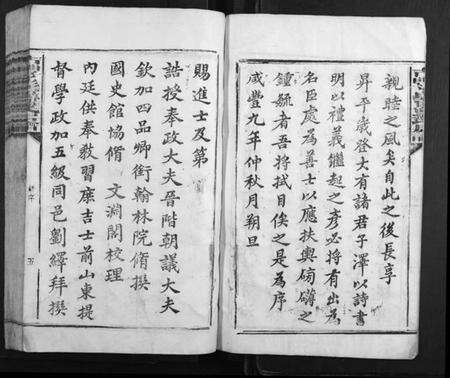 親睦之風矣自此之後長享
昇平歲登大有諸君子澤以詩書
明以禮義繼起之彥必將有出為
名臣處為善士以應扶輿磅礴之
鍾毓者吾將拭目俟之是為序
咸豐九年仲秋月朔旦
賜進士及第
誥授奉政大夫晉階朝議大夫
欽加四品卿銜翰林院脩撰
國史館協脩 文淵閣校理
內廷供奉教習庶吉士前山東提
督學政加五級同邑劉繹拜撰